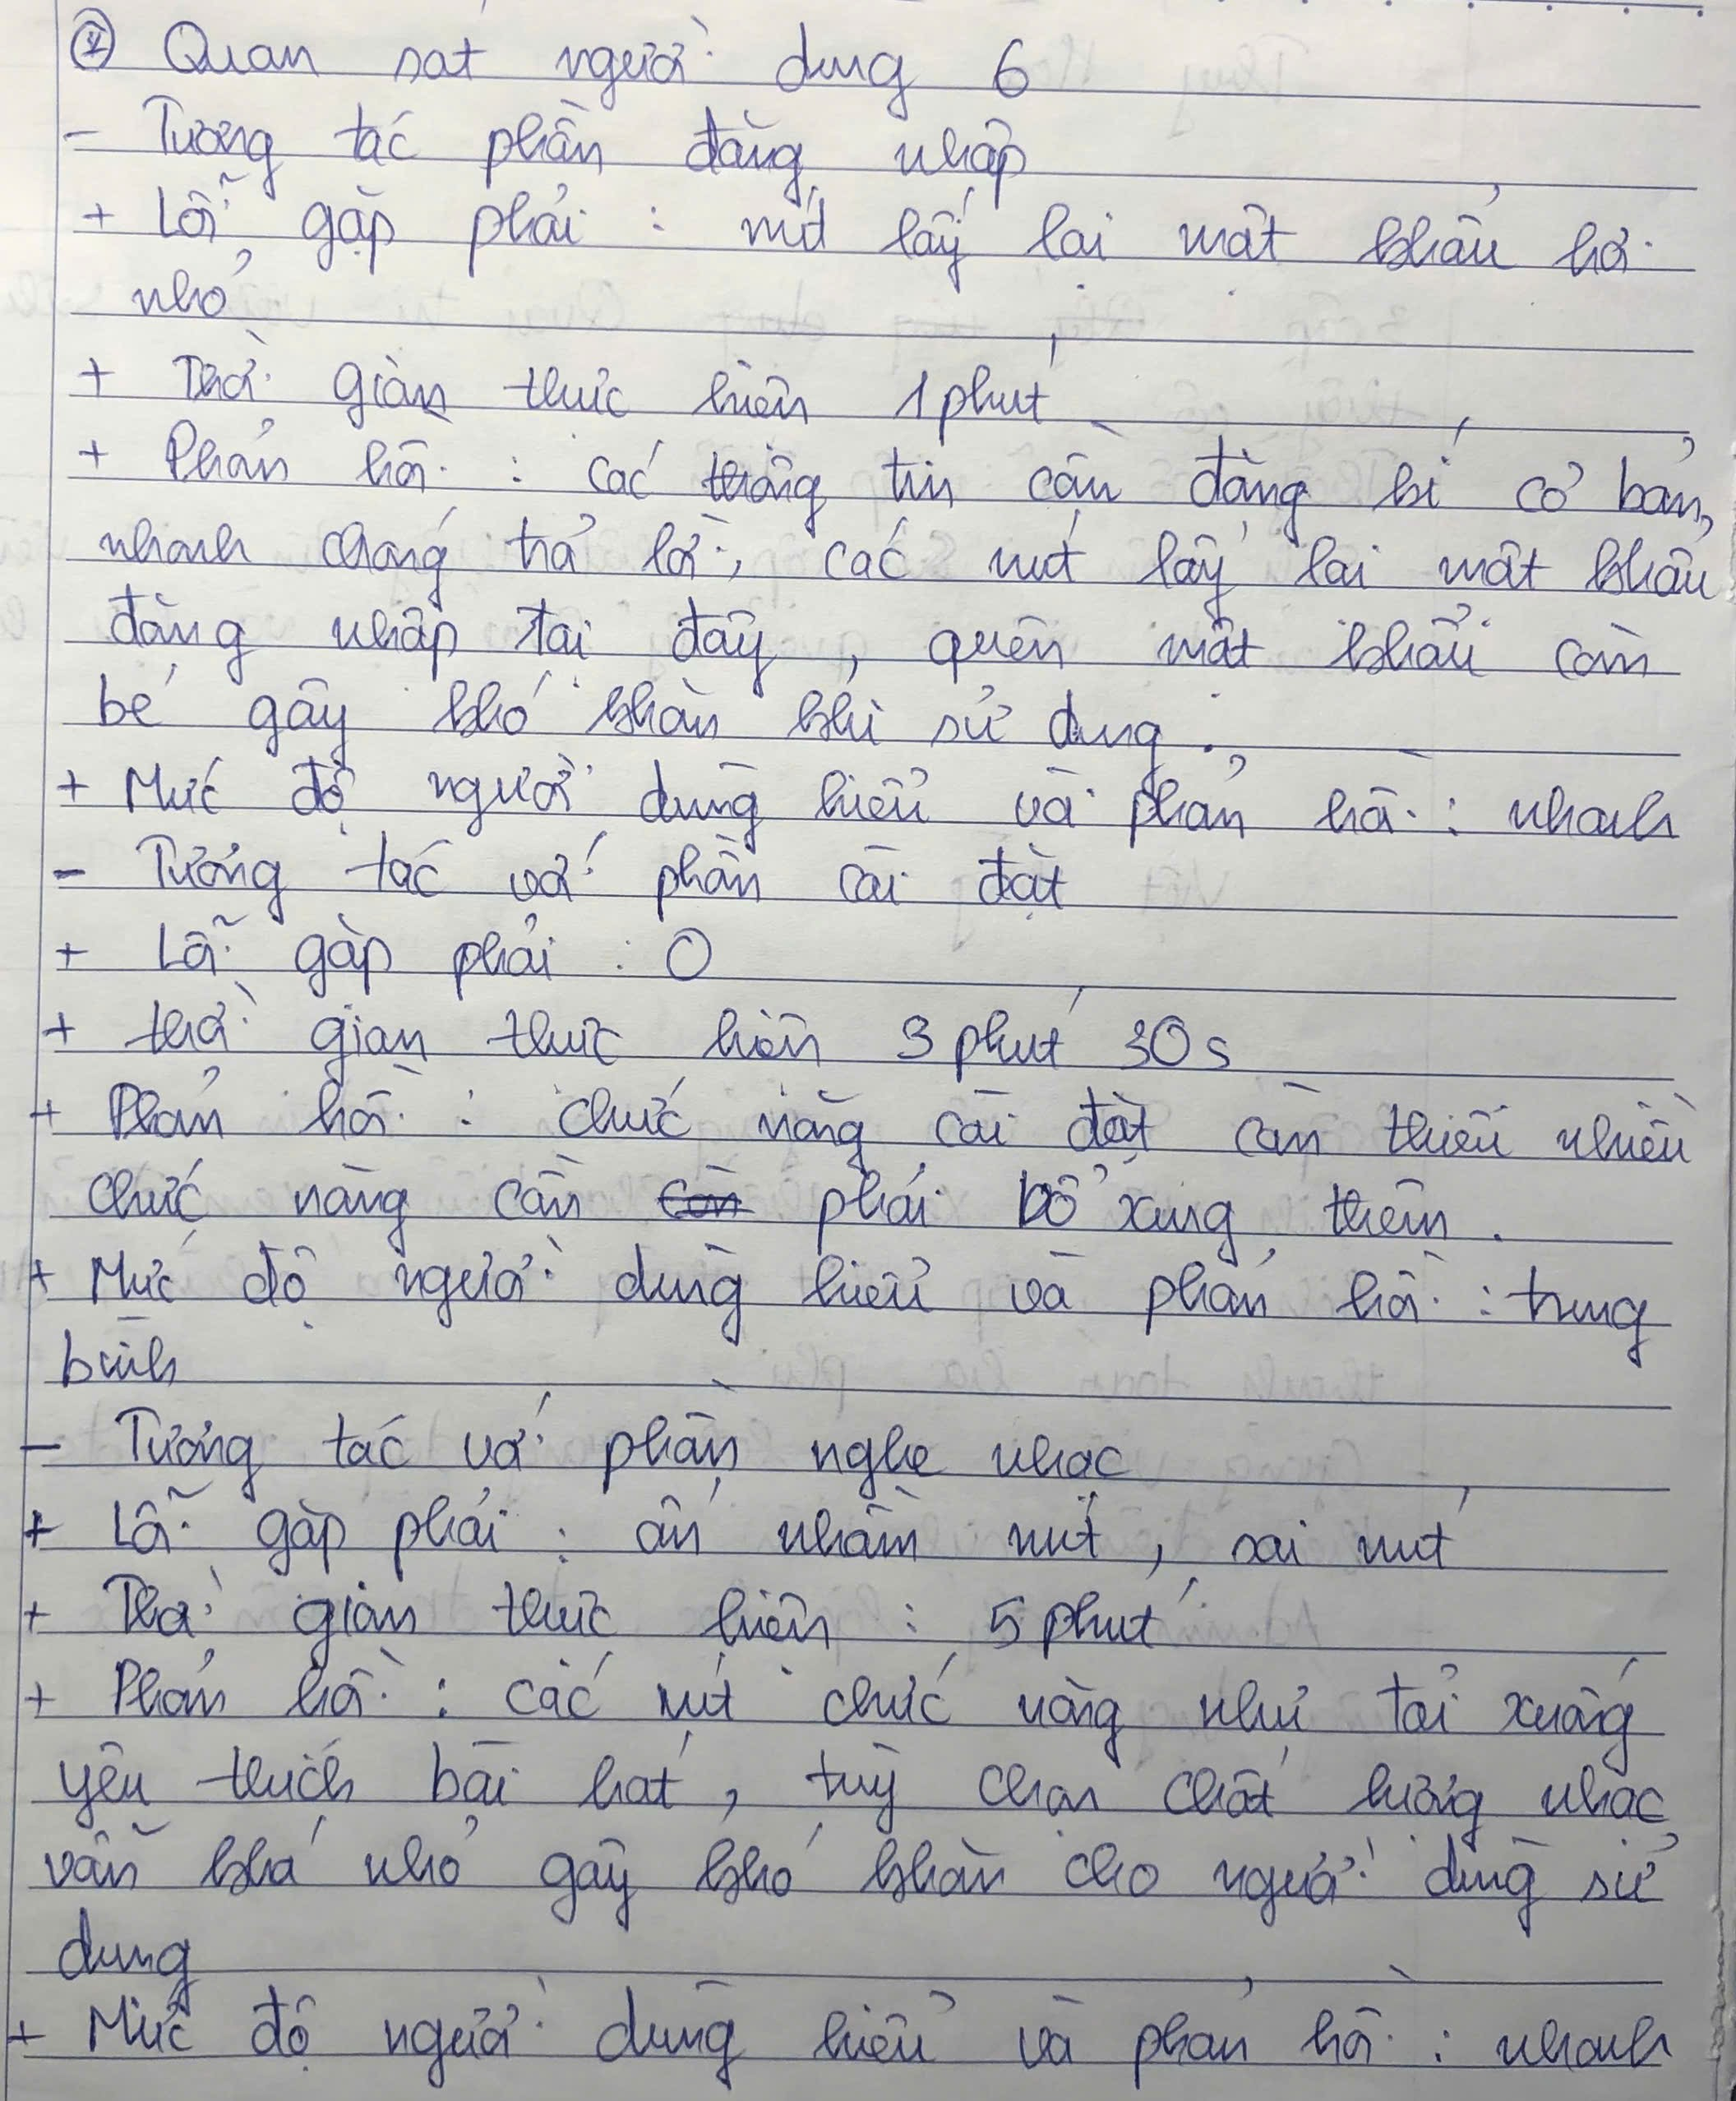 * Quan sát người dùng 6
- Tương tác phần đăng nhập
+ Lỗi gặp phải : nút lấy lại mật khẩu hơi
nhỏ
+ Thời gian thực hiện 1 phút
+ Phản hồi : các thông tin cần đăng kí cơ bản,
nhanh chóng trả lời, các nút lấy lại mật khẩu
đăng nhập tại đây, quên mật khẩu còn
bé gây khó khăn khi sử dụng.
+ Mức độ người dùng hiểu và phản hồi : nhanh
- Tương tác với phần cài đặt
+ Lỗi gặp phải : 0
+ thời gian thực hiện 3 phút 30s
+ Phản hồi : chức năng cài đặt còn thiếu nhiều
chức năng cần còn phải bổ xung thêm.
+ Mức độ người dùng hiểu và phản hồi : trung
bình
- Tương tác với phần nghe nhạc
+ Lỗi gặp phải : ấn nhầm nút, sai nút
+ Thời gian thực hiện : 5 phút
+ Phản hồi : các nút chức năng như tải xuống
yêu thích bài hát, tuỳ chọn chất lượng nhạc
vẫn khá nhỏ gây khó khăn cho người dùng sử
dụng
+ Mức độ người dùng hiểu và phản hồi : nhanh